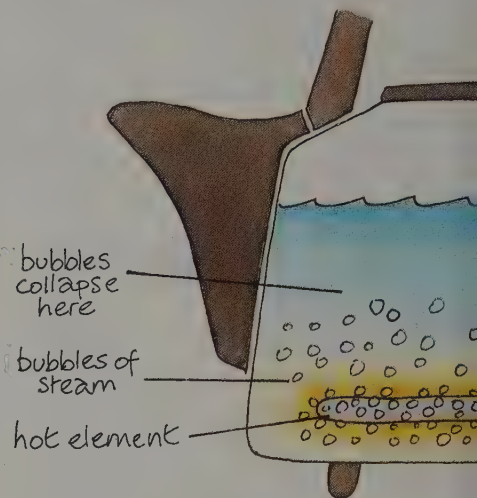 bubbles
collapse
here
bubbles of
steam
hot element